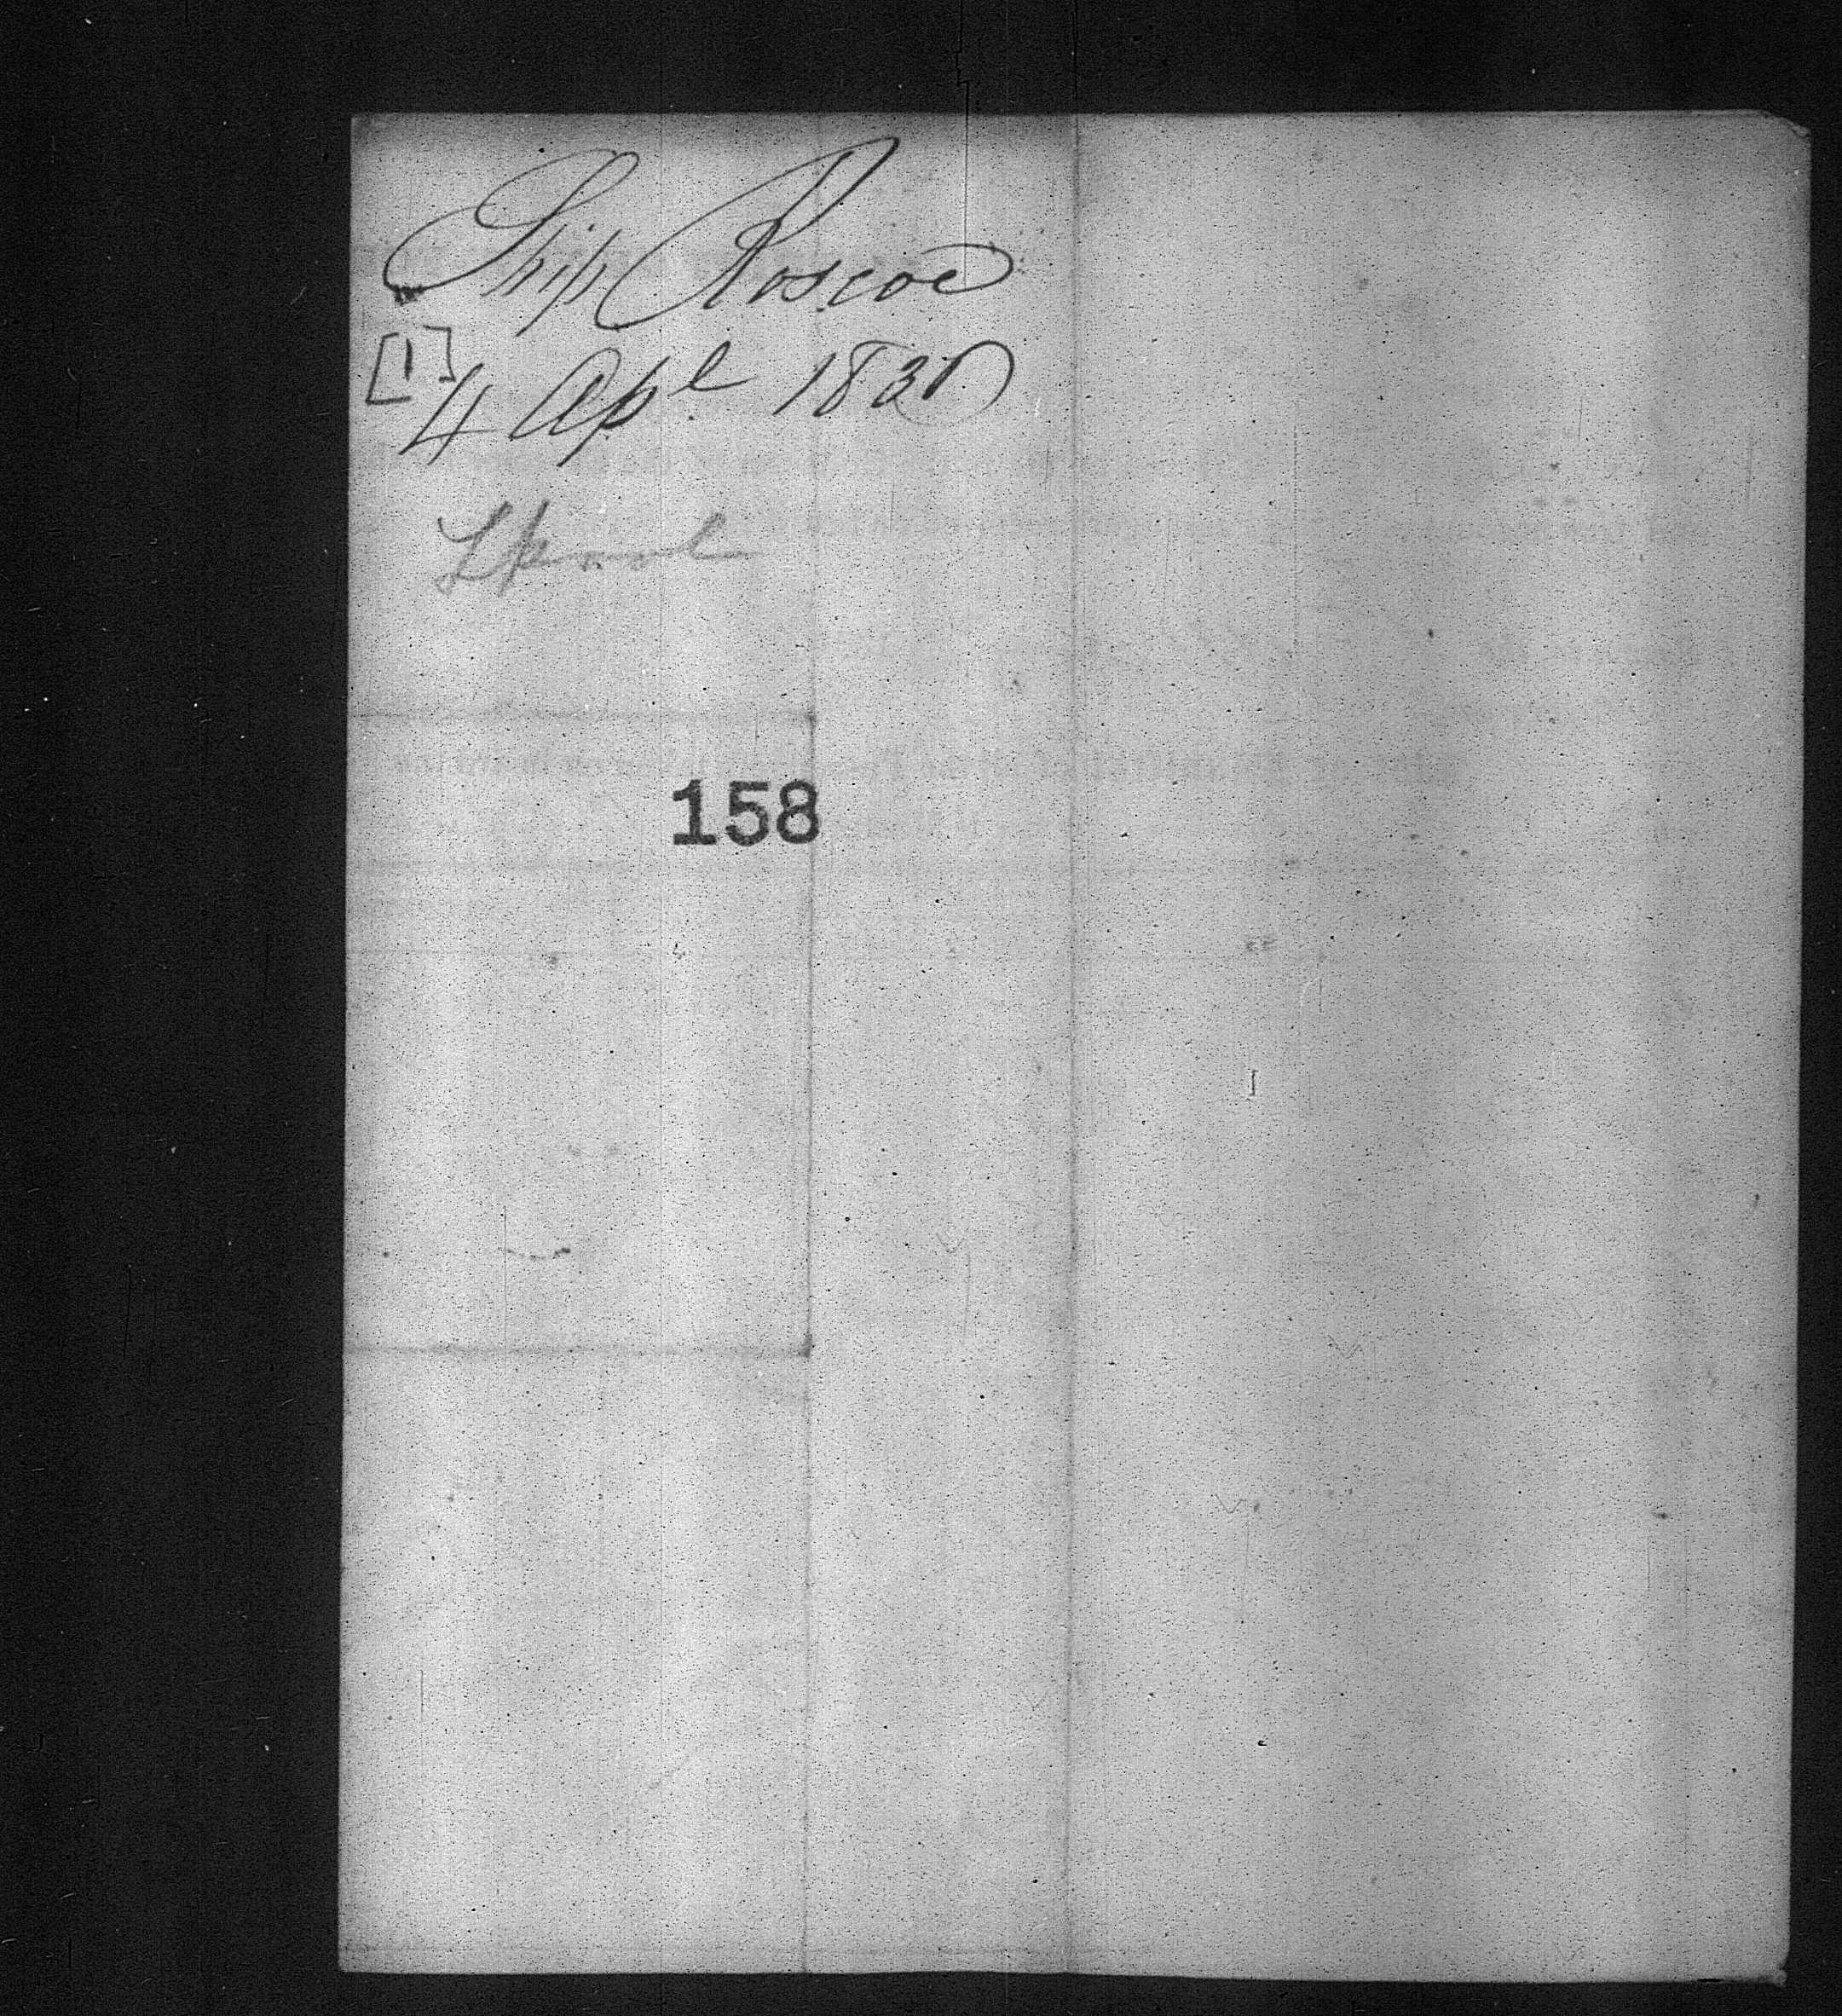 Ship Roscoe
[1]
4 Apl 1830
Lpool
158